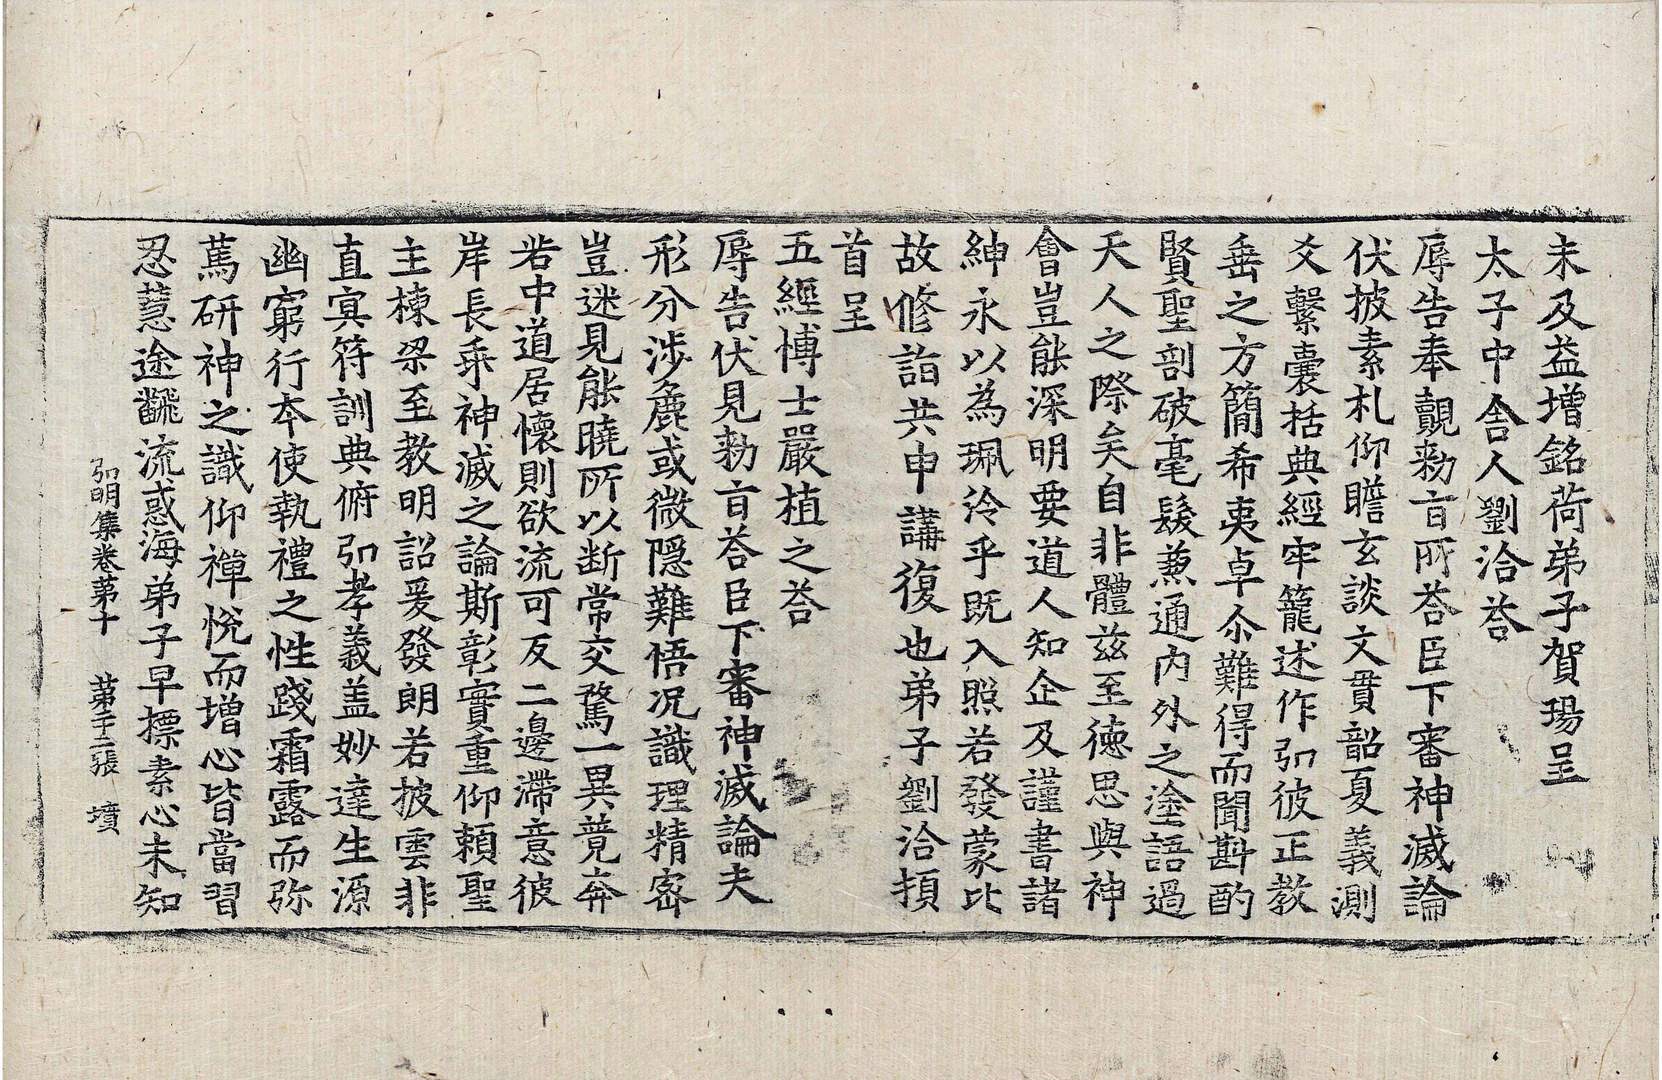 未及益增銘荷弟子賀瑒呈
太子中舍人劉洽荅
辱告奉覿勑旨所荅臣下審神滅論
伏披素札仰瞻玄談文貫韶夏義測
爻繫囊括典經牢籠述作弘彼正教
垂之方簡希夷卓尒難得而聞斟酌
賢聖剖破毫髮兼通內外之塗語過
天人之際矣自非體茲至德思與神
會豈能深明要道人知企及謹書諸
紳永以為珮泠乎既入照若發蒙比
故修詣共申講復也弟子劉洽頓
首呈
五經博士嚴植之荅
辱告伏見勑旨荅臣下審神滅論夫
形分涉麁或微隱難悟況識理精密
豈迷見能曉所以断常交騖一異競奔
若中道居懷則欲流可反二邊滯意彼
岸長乖神滅之論斯彰實重仰賴聖
主棟梁至教明詔爰發朗若披雲非
直冥符訓典俯弘孝義盖妙達生源
幽窮行本使執禮之性踐霜露而弥
篤研神之識仰禪悅而增心皆當習
忍慧途飜流惑海弟子早標素心未知
弘明集卷第十　第二十二張　墳